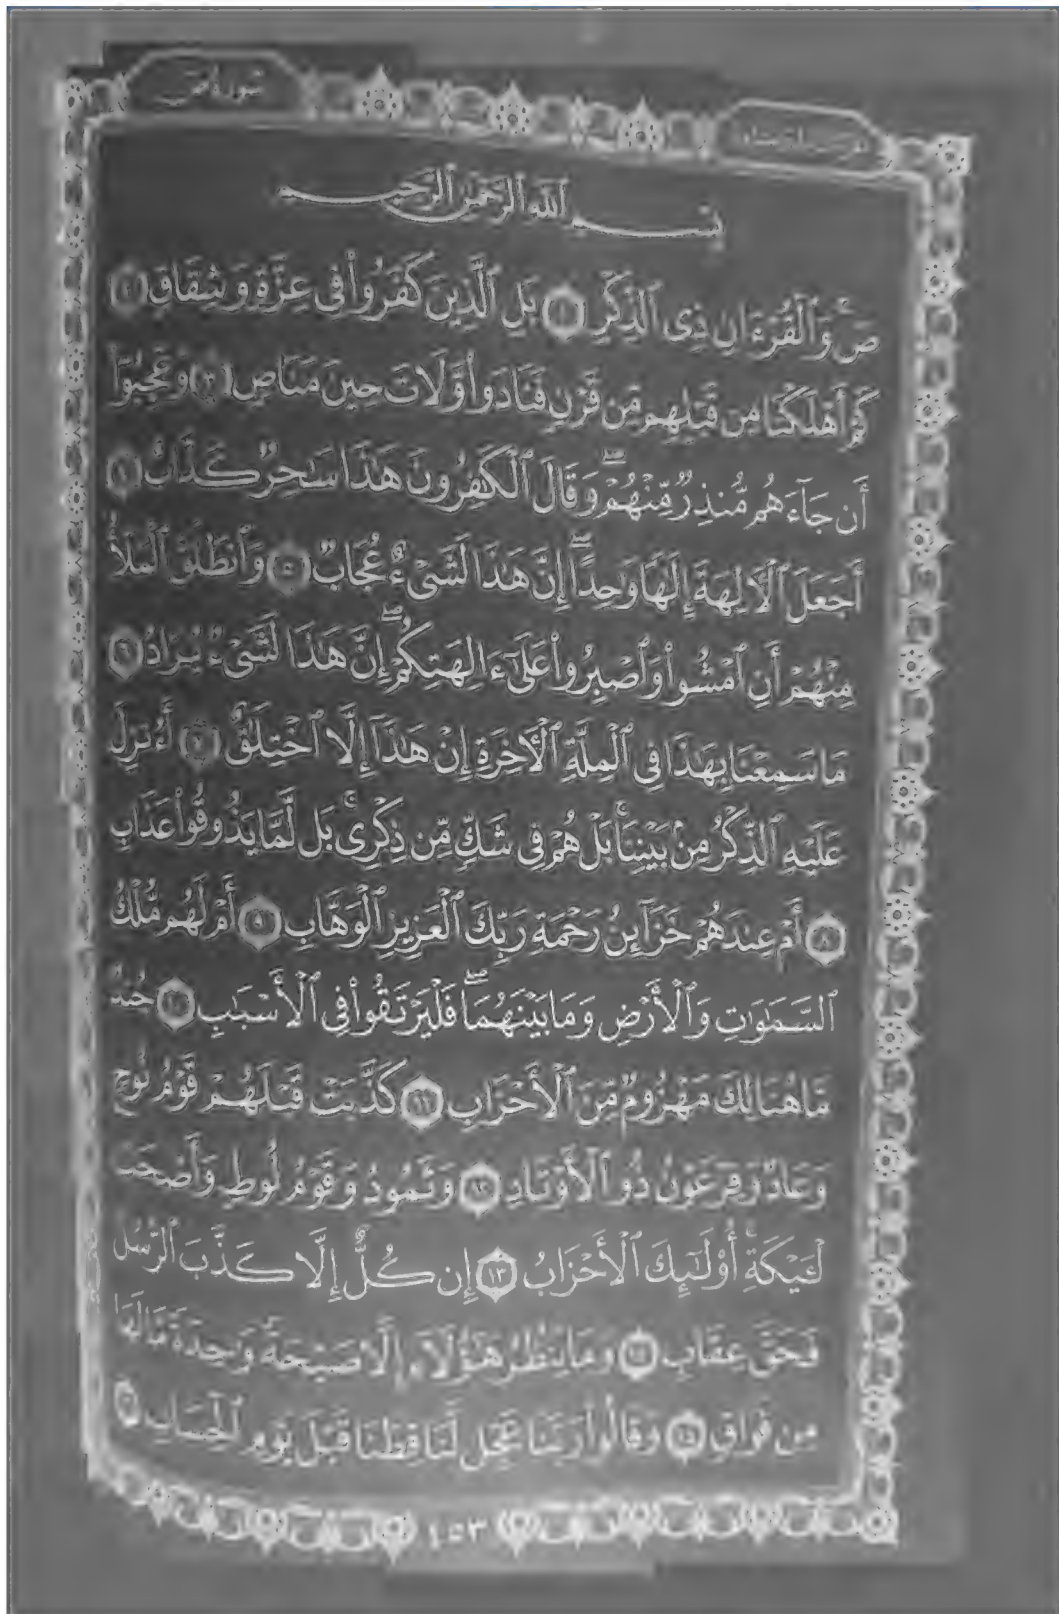 سُورَةُ صٓ
بِسْمِ ٱللَّهِ ٱلرَّحْمَٰنِ ٱلرَّحِيمِ
صٓ وَٱلْقُرْءَانِ ذِى ٱلذِّكْرِ ١ بَلِ ٱلَّذِينَ كَفَرُوا۟ فِى عِزَّةٍ وَشِقَاقٍ ٢
كَمْ أَهْلَكْنَا مِن قَبْلِهِم مِّن قَرْنٍ فَنَادَوا۟ وَّلَاتَ حِينَ مَنَاصٍ ٣ وَعَجِبُوٓا۟
أَن جَآءَهُم مُّنذِرٌ مِّنْهُمْ ۖ وَقَالَ ٱلْكَٰفِرُونَ هَٰذَا سَٰحِرٌ كَذَّابٌ ٤
أَجَعَلَ ٱلْءَالِهَةَ إِلَٰهًا وَٰحِدًا ۖ إِنَّ هَٰذَا لَشَىْءٌ عُجَابٌ ٥ وَٱنطَلَقَ ٱلْمَلَأُ
مِنْهُمْ أَنِ ٱمْشُوا۟ وَٱصْبِرُوا۟ عَلَىٰٓ ءَالِهَتِكُمْ ۖ إِنَّ هَٰذَا لَشَىْءٌ يُرَادُ ٦
مَا سَمِعْنَا بِهَٰذَا فِى ٱلْمِلَّةِ ٱلْءَاخِرَةِ إِنْ هَٰذَآ إِلَّا ٱخْتِلَٰقٌ ٧ أَءُنزِلَ
عَلَيْهِ ٱلذِّكْرُ مِنۢ بَيْنِنَا ۚ بَلْ هُمْ فِى شَكٍّ مِّن ذِكْرِى ۚ بَل لَّمَّا يَذُوقُوا۟ عَذَابِ
٨ أَمْ عِندَهُمْ خَزَآئِنُ رَحْمَةِ رَبِّكَ ٱلْعَزِيزِ ٱلْوَهَّابِ ٩ أَمْ لَهُم مُّلْكُ
ٱلسَّمَٰوَٰتِ وَٱلْأَرْضِ وَمَا بَيْنَهُمَا ۖ فَلْيَرْتَقُوا۟ فِى ٱلْأَسْبَٰبِ ١٠ جُندٌ
مَّا هُنَالِكَ مَهْزُومٌ مِّنَ ٱلْأَحْزَابِ ١١ كَذَّبَتْ قَبْلَهُمْ قَوْمُ نُوحٍ
وَعَادٌ وَفِرْعَوْنُ ذُو ٱلْأَوْتَادِ ١٢ وَثَمُودُ وَقَوْمُ لُوطٍ وَأَصْحَٰبُ
لْـَٔيْكَةِ ۚ أُو۟لَٰٓئِكَ ٱلْأَحْزَابُ ١٣ إِن كُلٌّ إِلَّا كَذَّبَ ٱلرُّسُلَ
فَحَقَّ عِقَابِ ١٤ وَمَا يَنظُرُ هَٰٓؤُلَآءِ إِلَّا صَيْحَةً وَٰحِدَةً مَّا لَهَا
مِن فَوَاقٍ ١٥ وَقَالُوا۟ رَبَّنَا عَجِّل لَّنَا قِطَّنَا قَبْلَ يَوْمِ ٱلْحِسَابِ ١٦
٤٥٣